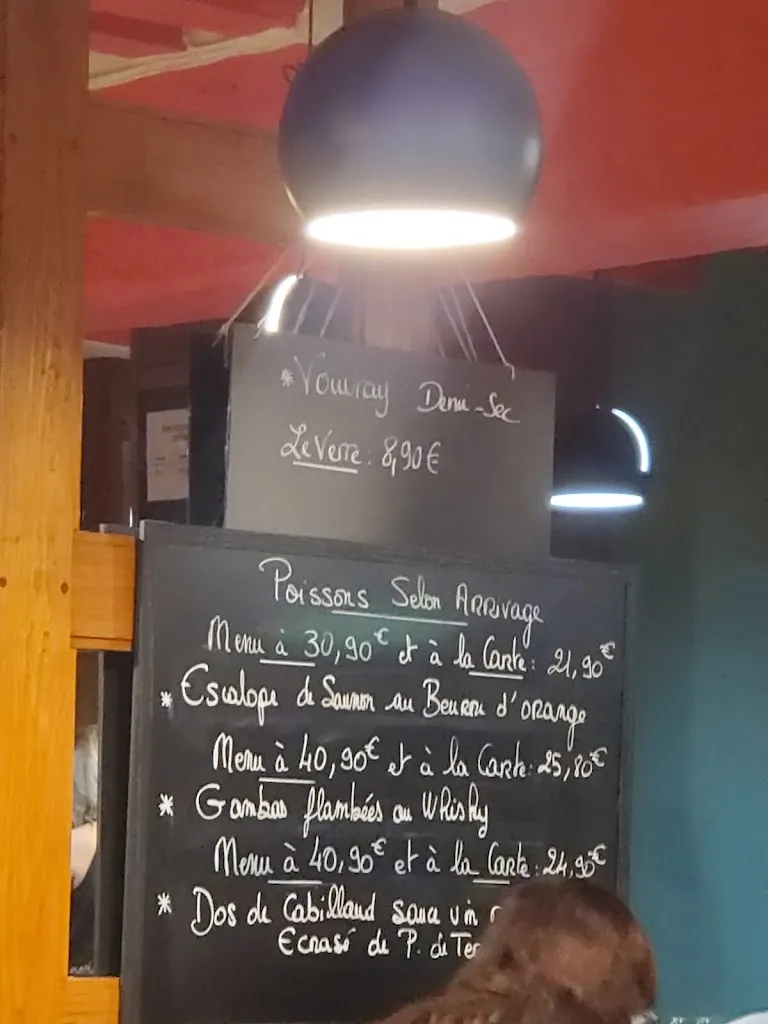 *Vouvray Demi-Sec
Le Verre: 8,90€
Poissons Selon ARRivage
Menu à 30,90€ et à la Carte: 21,90€
* Escalope de Saumon au Beurre d'orange
Menu à 40,90€ et à la Carte: 25,80€
* Gambas flambées au Whisky
Menu à 40,90€ et à la Carte: 24,90€
* Dos de Cabillaud sauce vin
Ecrasé de P. de Ter